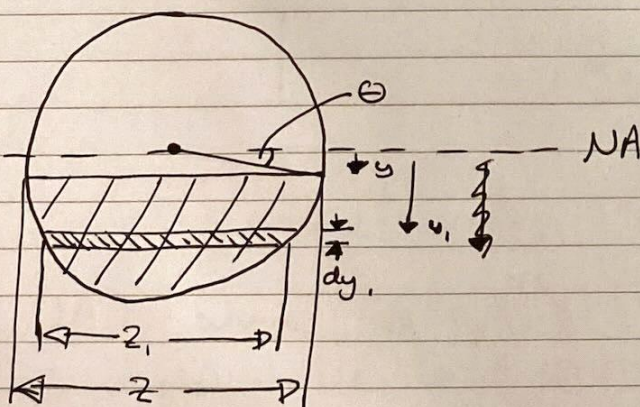 Θ
NA
y
y₁
dy₁
Z₁
Z